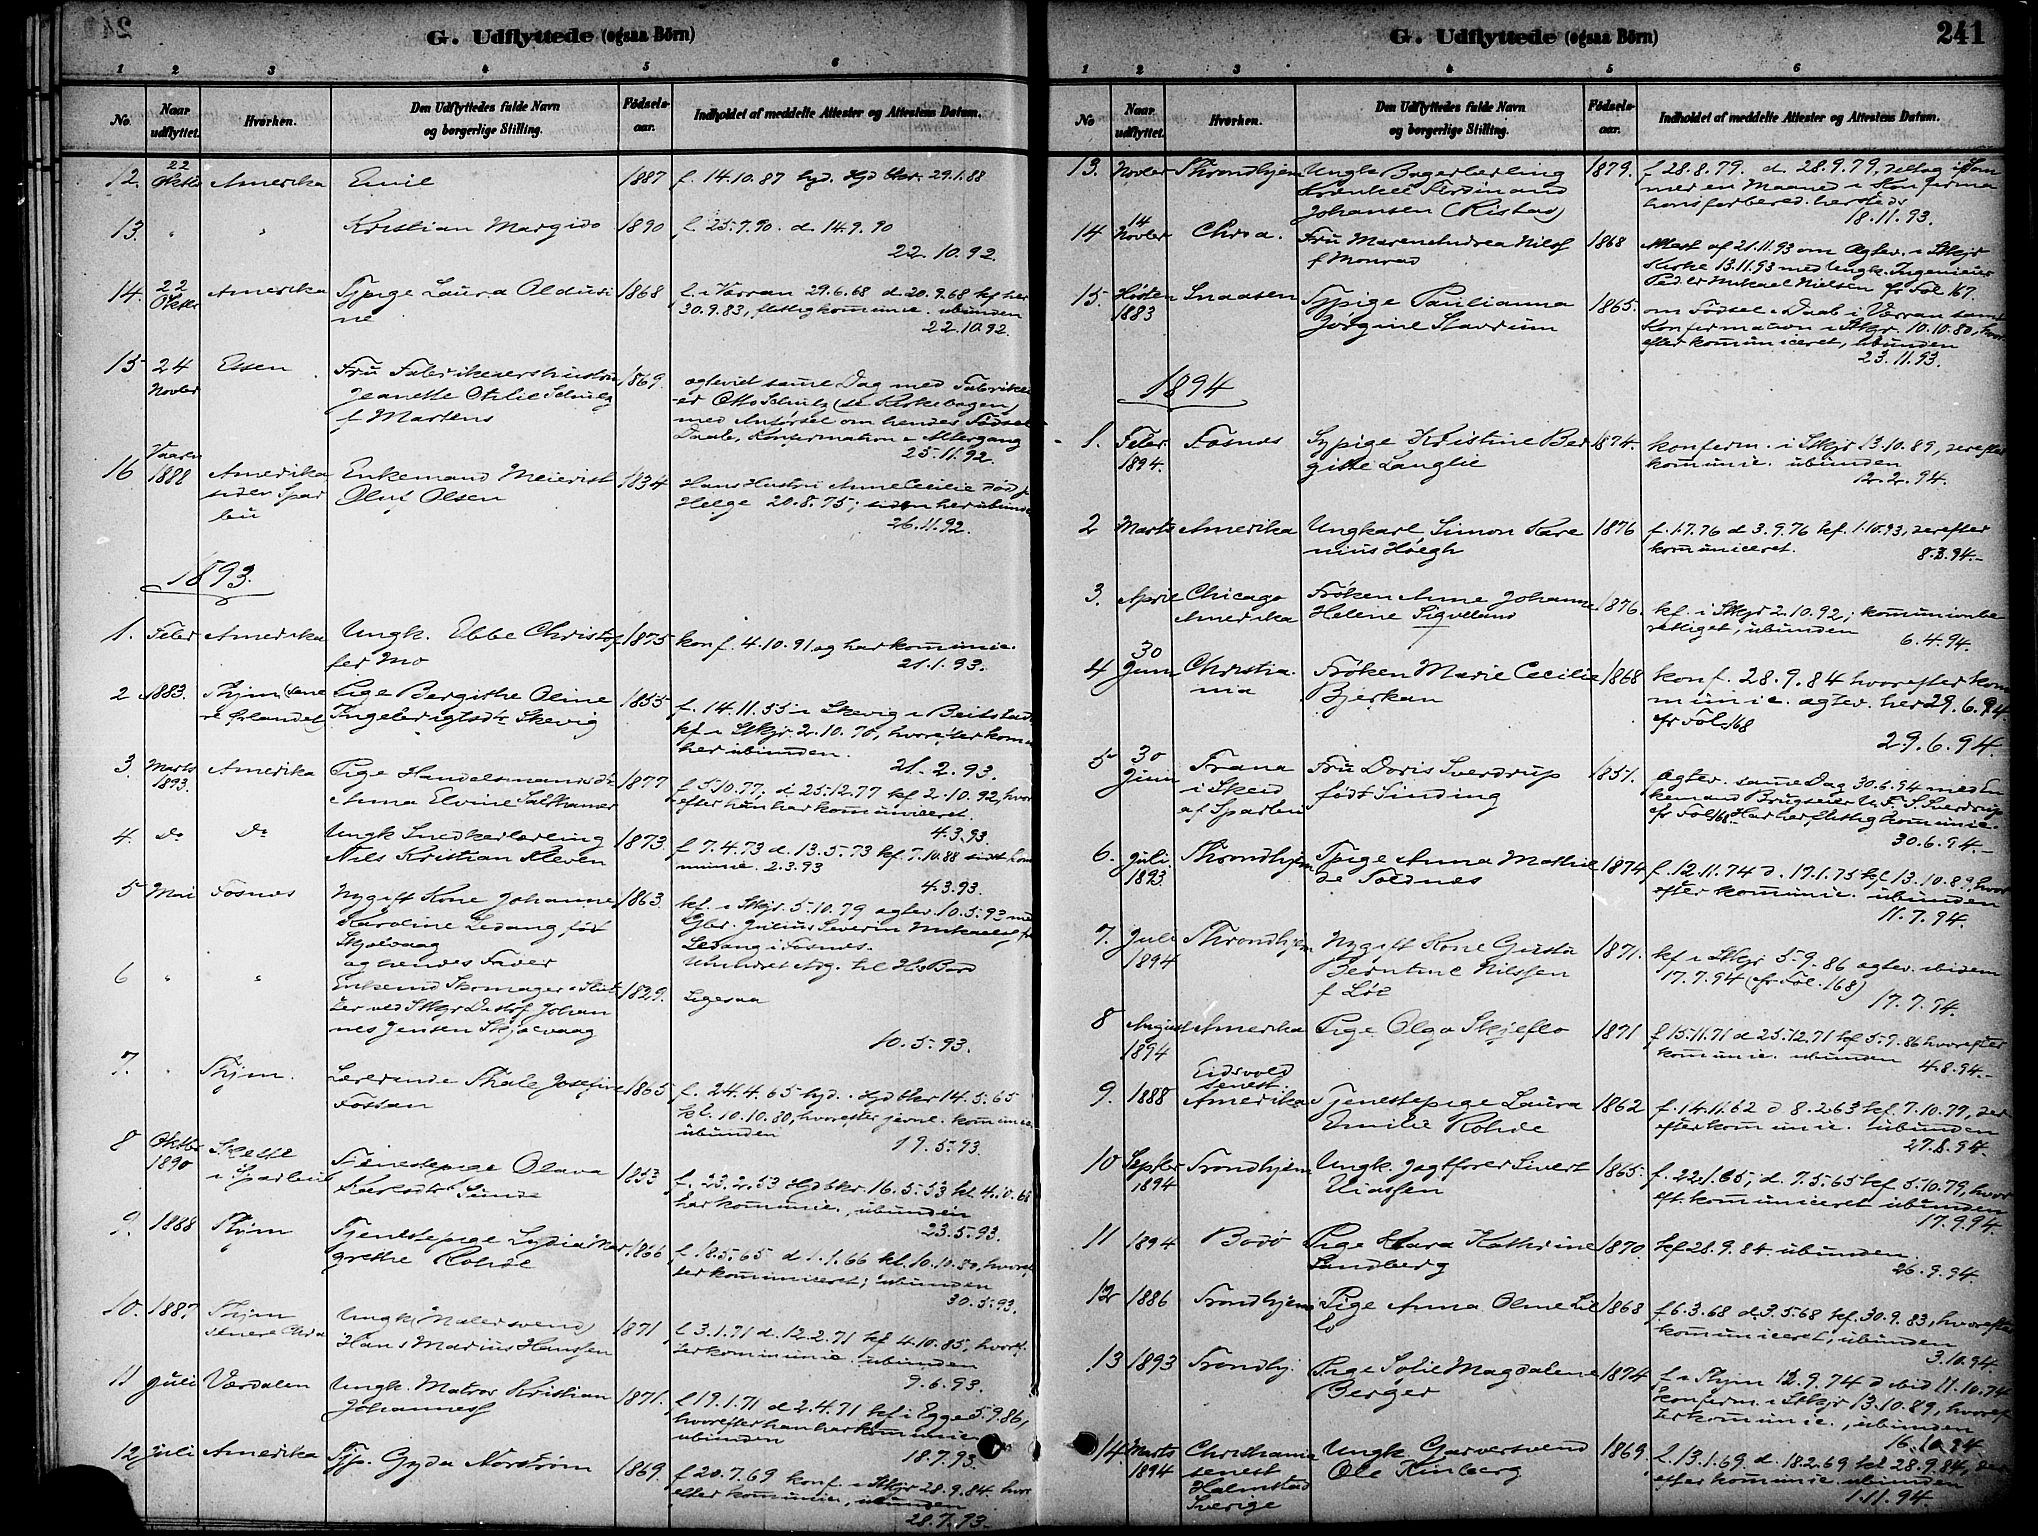 G. Udflyttede (ogsaa Börn)
1 2 3 4 5 6
No. Naar udflyttet. Hvorhen. Den Udflyttedes fulde Navn og borgerlige Stilling. Födselsaar. Indholdet af meddelte Attester og Attestens Datum.
12. 22 Oktbr Amerika Emil 1887 f. 14.10.87 29.1.88
13. " " Kristian Margido 1890 f. 25.7.90 d. 14.9.90
22.10.92.
14. 22 Oktbr Amerika Tjpige Laura Oldurine 1868 f. i Værran 29.6.68 d. 20.9.68 kf her
30.9.83, flittig kommunic. ubunden
22.10.92.
15 24 Novbr Essen Fru Fabrikeiershustru 1869.
Jeanette Otilie Schulz
f Martens
agteviet samme Dag med Fabrikei-
er Otto Schulz (se Kirkebogen)
med Anförsel om hendes Födsel
Daab, Konfirmation & Altergang
25.11.92.
16 Vaaren 1888 Amerika siden Sparbu Enkemand Meierist 1834
Oluf Olsen
Hans Hustru Anne Cecilie död
Helge 20.8.75; siden her ubunden
26.11.92.
1893.
1. Febr Amerika Ungk. Ebbe Christof 1875 konf. 4.10.91 og har kommunic.
fer Mo
21.1.93.
2 1883. Thjm (senere Ørlandet) Pige Bergithe Oline 1855
Ingebrigtsdr Skevig
f. 14.11.55 i Skevig i Beitstad
kf i Stkjr 2.10.70, hvorefter kom
her ubunden.
21.2.93.
3. Marts 1893. Amerika Pige Handelsmandsdr 1877
Anna Elvine Salthamer
f. 5.10.77, d. 25.12.77 kf 2.10.92, hvor
efter hun har kommuniceret.
4.3.93.
4. do do Ungk Snedkerlærling 1873.
Nils Kristian Kleven
f 7.4.73 d. 13.5.73 kf. 7.10.88 sidst kom
munic. 2.3.93
4.3.93.
5 Mai Fosnes Nygift Kone Johanne 1863.
Karoline Ledang født
Skjelvaag
kf. i Stkjr. 5.10.79 agtev. 10.5.93 med
Gbr. Julius Severin Mikaelsf fr
Ledang i Fosnes.
og hendes Fader
6 " " Enkemd Skomager 1829. Ligesaa
ved Stkjr Detlof Johan
nes Jensen Skjelvaag
10.5.93.
7. " Thjm. Lærerinde Thale Josefine 1865
Fossan
f. 24.4.65 14.5.65
kf. 10.10.80, hvorefter jevnl. kommunic.
ubunden
19.5.93.
8 Oktbr 1890 i Sparbu Tjenestepige Olava 1853
f. 23.2.53 16.5.53 kf. 4.10.68
har kommunic., ubunden
23.5.93.
9. 1888 Thjm Tjenestepige Lydia Mar 1866
grethe Rohde
f. 18.5.65 d. 1.1.66 kf. 10.10.80, hvoref
ter kommuniceret; ubunden
30.5.93.
10. 1887 Thjm senere Chra Ungk. Malersvend 1871
Hans Marius Hanssen
f 3.1.71 d. 12.2.71 kf 4.10.85, hvoref
ter kommunic. ubunden
9.6.93.
11 Juli Værdalen Ungk. Matros Kristian 1871.
Johannesf
f. 19.1.71 d 2.4.71 kf i Egge 5.9.86,
hvorefter han har kommunic
ubunden
18.7.93.
12 Juli Amerika Tjp. Gyda Norström 1869.
f 20.7.69 konf. i Stkjr 28.9.84 hvor
efter kommunic., ubunden
28.7.93.
G. Udflyttede (ogsaa Börn) 241
1 2 3 4 5 6
No Naar udflyttet. Hvorhen. Den Udflyttedes fulde Navn og borgerlige Stilling. Födselsaar. Indholdet af meddelte Attester og Attestens Datum.
13. Novbr Throndhjem Ungk Bagerlærling 1879.
Ferdinand
Johansen (Ristad)
f 28.8.79 d. 28.9.79, deltog i Som
mer en Maaned i Konfirma
tionsforbered. hersteds
18.11.93.
14 14 Novbr Chra. Fru Maren Andrea Nilsf 1868
f Monrad
Attest af 21.11.93 om Agtev. i Stkjr
Kirke 13.11.93 med Ungk. Ingeniør
Peder Mikael Nielsen fr Fol 167.
15 Høsten 1883 Snaasen Sypige Paulianna 1865.
Jørgine Stavrum
om Födsel & Daab i Værran samt
Konfirmation i Stkjr. 10.10.80, hvor
efter kommuniceret, ubunden
23.11.93.
1894
1. Febr. 1894. Fosnes Sypige Kristine Ber 1874.
gitte Langlie
konferm. i Stkjr 13.10.89, derefter
kommunic. ubunden
12.2.94.
2 Marts Amerika Ungkarl Simon Kare 1876
nius Høegh
f. 1.7.76 d 3.9.76 kf. 1.10.93, derefter
kommuniceret.
8.3.94.
3. April Chicago Amerika Frøken Anne Johanne 1876.
Helene
kf. i Stkjr 2.10.92; kommunionbe
rettiget, ubunden
6.4.94.
4 30 Juni Christiania Frøken Marie Cecilie 1868
Bjerkan
konf. 28.9.84 hvorefter kom
munic. agtev. her 29.6.94
cfr Fol 168
29.6.94.
5 30 Juni Frana i Sparbu Fru Doris Sverdrup 1851.
født Sinding
agtev. samme Dag 30.6.94 med En
kemand Brugseier U. F. S. Sverdrup
cfr Fol 168. Har her flittig kommunic.
30.6.94.
6. Juli 1893. Throndhjem Tpige Anna Mathil 1874
de Foldnes
f. 12.11.74 d. 17.1.75 kf. 13.10.89, hvor
efter kommunic. ubunden
11.7.94.
7. Juli 1894 Throndhjem Nygift Kone Gusta 1871.
Berntine Nilssen
f Löe
kf i Stkjr 5.9.86 agtev. ibidem
17.7.94 (fr Fol. 168)
17.7.94.
8 August 1894 Amerika Pige Olga Skjeflo 1871
f. 15.11.71 d 25.12.71 kf 5.9.86 hvorefter
kommunic. ubunden
4.8.94.
9. 1888 Eidsvold senest Amerika Tjenestepige Laura 1862
Emilie Rohde
f. 14.11.62 d 8.2.63 kf. 7.10.79, der
efter kommunic. ubunden
27.8.94.
10 Septbr 1894 Trondhjem Ungk. Jagtfører Sivert 1865.
f. 22.1.65; d. 7.5.65 kf 5.10.79, hvor
eft. kommuniceret ubunden
17.9.94.
11 1894 Bodø Pige Klara Kathrine 1870
Sandberg
kf 28.9.84. ubunden.
26.9.94.
12 1886 Trondhjem Pige Anna Oline Lil 1868
lo
f. 6.3.68 d 3.5.68 kf. 30.9.83, hvorefter
kommuniceret, ubunden
3.10.94.
13 1893 Trondhj. Pige Sofie Magdalene 1874
Berger
f. i Thjm 12.9.74 d ibid 11.10.74
Konferm. i Stkjr 13.10.89, hvoref
ter kommunic., ubunden
16.10.94
14. Marts 1894 Christiania senest Halmstad Sverige Ungk Garversvend 1869.
Ole Kinberg
f. 13.1.69. d. 18.2.69 kf 28.9.84, der
efter kommunic. ubunden
1.11.94.